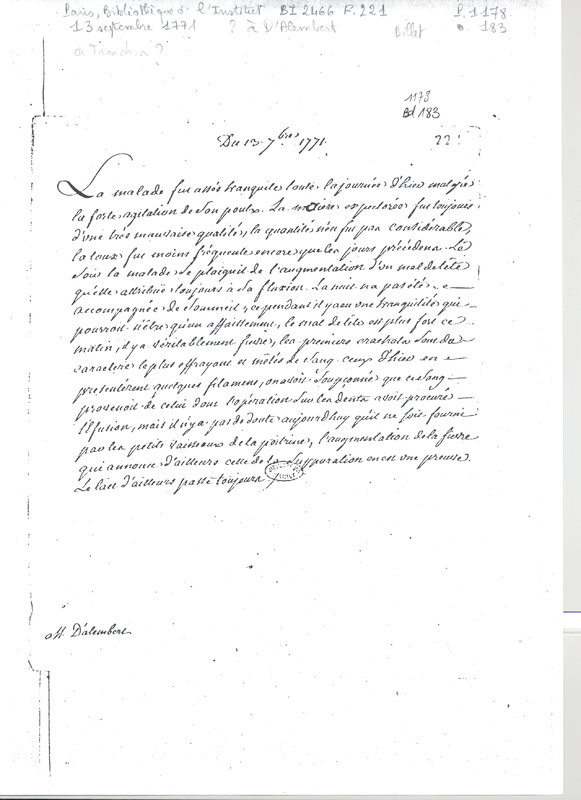 Paris, Bibliothèque de l'Institut BI 2466 F. 221 P. 1178
13 septembre 1771 ? à D'Alembert Billet 183
1178
Bd 183
Du 13. 7bre 1771. 221
La malade fut assés tranquile toute la journée d'hier malgré
la forte agitation de son pouls. La matiere expectorée fut toujours
d'une très mauvaise qualité, la quantité n'en fut pas considérable,
la toux fut moins fréquente encore que les jours précédens. Le
soir la malade se plaignit de l'augmentation d'un mal de tête
qu'elle attribuë toujours à sa fluxion. La nuit n'a pas été
accompagnée de sommeil, cependant il y a eu une tranquilité qui
pourroit n'être qu'un affaissement, le mal de tête est plus fort ce
matin, il y a véritablement fievre, les premiers crachats sont du
caractere le plus effrayant et mêlés de sang. ceux d'hier en
presentérent quelques filamens, on avoit soupçonné que ce sang
provenoit de celui dont l'opération sur les dents avoit procuré
l'effusion, mais il n'y a pas de doute aujourdhuy qu'il ne soit fourni
par les petits vaisseaux de la poitrine, l'augmentation de la fievre
qui annonce d'ailleurs celle de la suppuration en est une preuve.
Le lait d'ailleurs passe toujours
M. D'alembert